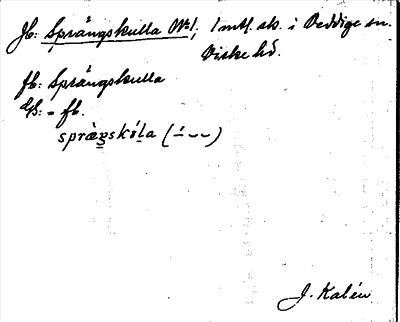 Jb: Sprängskulla No 1; 1 mtl. sk. i Veddige sn.
Viske hd.
fb: Sprängskulla
Us: = fb.
spràŋskúla (–́ ⏑ ⏑)
J. Kalén